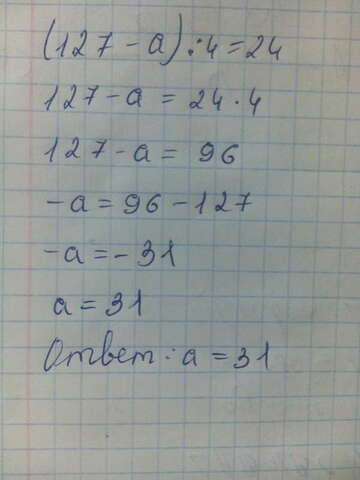 (127 - a) : 4 = 24
127 - a = 24 · 4
127 - a = 96
-a = 96 - 127
-a = - 31
a = 31
Ответ: a = 31